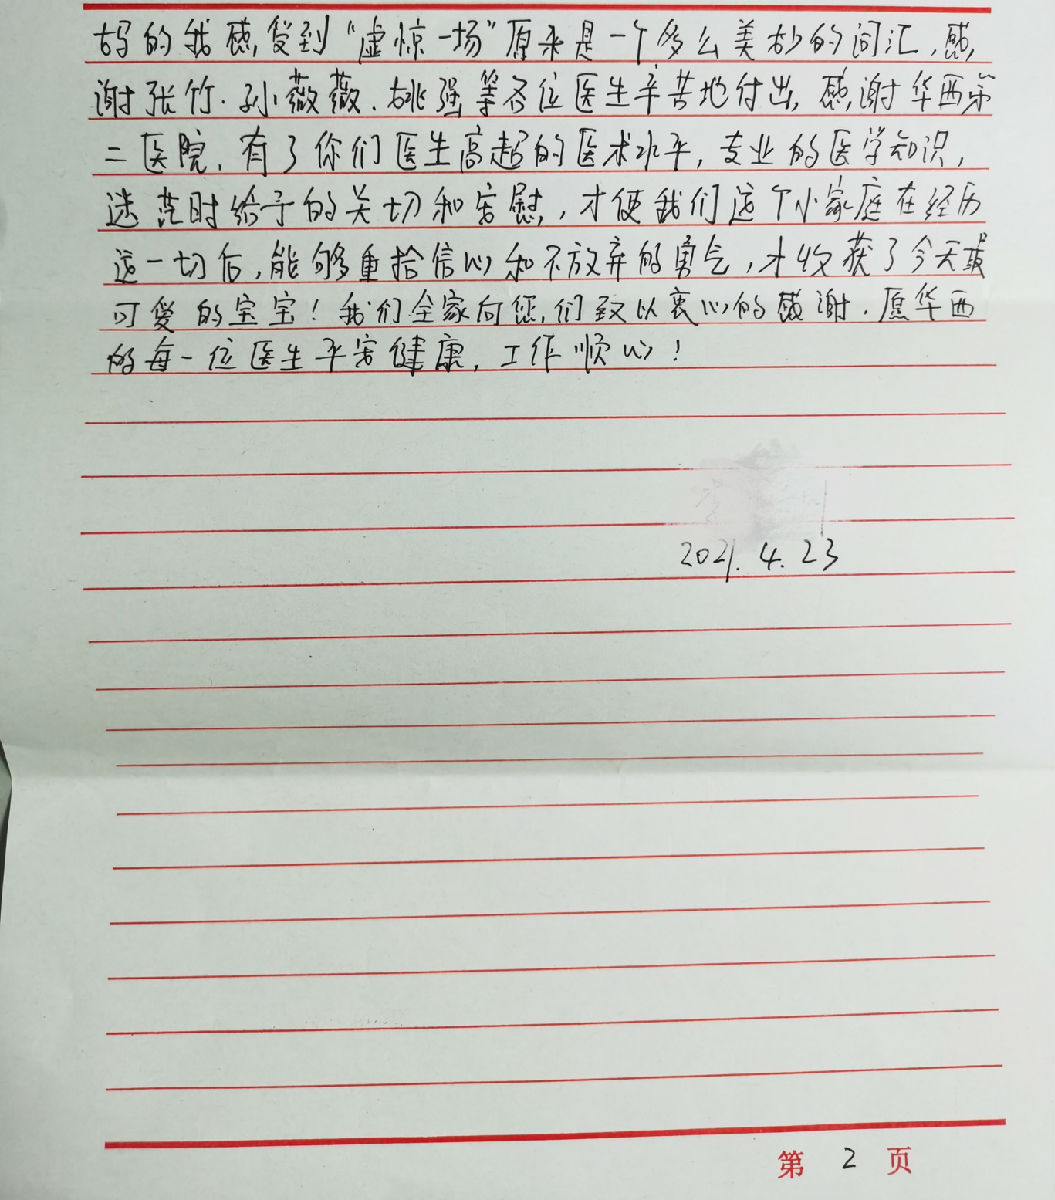 妈的我感受到“虚惊一场”原来是一个多么美妙的词汇，感
谢张竹、孙薇薇、姚强等各位医生辛苦地付出，感谢华西第
二医院，有了你们医生高超的医术水平，专业的医学知识，
迷茫时给予的关切和安慰，才使我们这个小家庭在经历
这一切后，能够重拾信心和不放弃的勇气，才收获了今天最
可爱的宝宝！我们全家向您们致以衷心的感谢．愿华西
的每一位医生平安健康，工作顺心！
2021.4.23
第 2 页